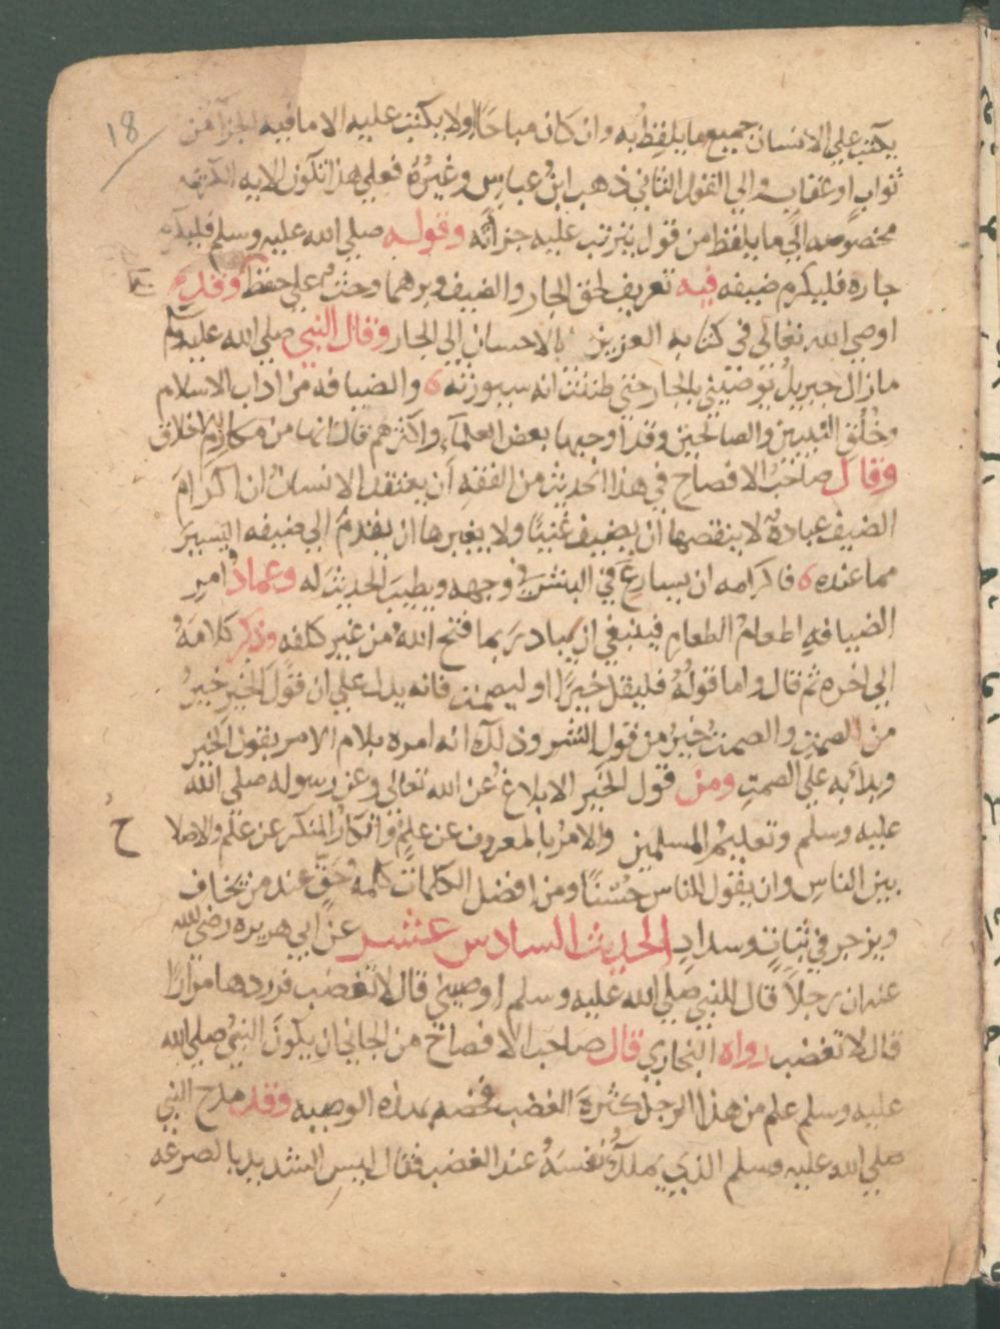 18
يكتب على الانسان جميع ما يلفظ به وان كان مباحا او لا يكتب عليه الا ما فيه الجزآ من
ثواب او عقاب والي القول الثاني ذهب ابن عباس وغيرُهُ فعلي هذا تكون الايه الكريمه
مخصوصه الي ما يلفظ من قول يترتب عليه جزآئه وقوله صلي الله عليه وسلم فليكرم
جاره فليكرم ضيفه فيه تعريف لحق الجار والضيف وبرهما وحث علي حفظ وقد
اوصي الله تعالي في كتابه العزيز بالاحسان الي الجار وقال النبي صلي الله عليه وسلم
مازال جبريلُ يوصيني بالجار حتي ظننت انه سيورثه والضيافه من اداب الاسلام
وخُلُق النبيين والصالحين وقد اوجبها بعض العلمآء واكثرهم قال انها من مكارم الاخلاق
وقال صاحبُ الافصاح في هذا الحديث من الفقه أن يعتقد الانسان ان اكرام
الضيف عبادة لا ينقصها ان يضيف غنيًا ولا يغيرها ان يقدم الي ضيفه اليسيرَ
مما عنده فاكرامه ان يسارع في البشر في وجهه ويطيب الحديث له وعماد امر
الضيافه اطعامُ الطعامِ فينبغي ان يبادر بما فتح اللهُ من غير كلفه وذكر كلامَهُ
الي اخره ثم قال واما قولُهُ فليقل خيرًا او ليصمت فانه يدل علي ان قول الخير خيرُ
من الصمتِ والصمتُ خيرُ من قول الشر وذلك انه امره بلام الامر بقول الخير
وبدا به علي الصمتِ ومن قول الخير الابلاغ عن الله تعالي وعن رسوله صلي الله
عليه وسلم وتعليمُ المسلمين والامر بالمعروف عن علمٍ وانكارُ المنكر عن علم والاصلا
ح
بين الناس وان يقول للناس حُسْنًا ومن افضل الكلمات كلمة حقٍّ عند من يخاف
ويرجي في ثبات وسداد الحديث السادس عشر عن ابي هريره رضي الله
عنه ان رجلاً قال للنبي صلي الله عليه وسلم اوصيني قال لا تغضب فردد ها مرارًا
قال لا تغضب رواه البخاري قال صاحب الافصاح من الجائز ان يكون النبيُ صلي الله
عليه وسلم علم من هذا الرجل كثرة الغضب فخصه بهذه الوصيه وقد مدح النبي
صلي الله عليه وسلم الذي يملك نفسَهُ عند الغضب فقال ليس الشديد بالصرعه